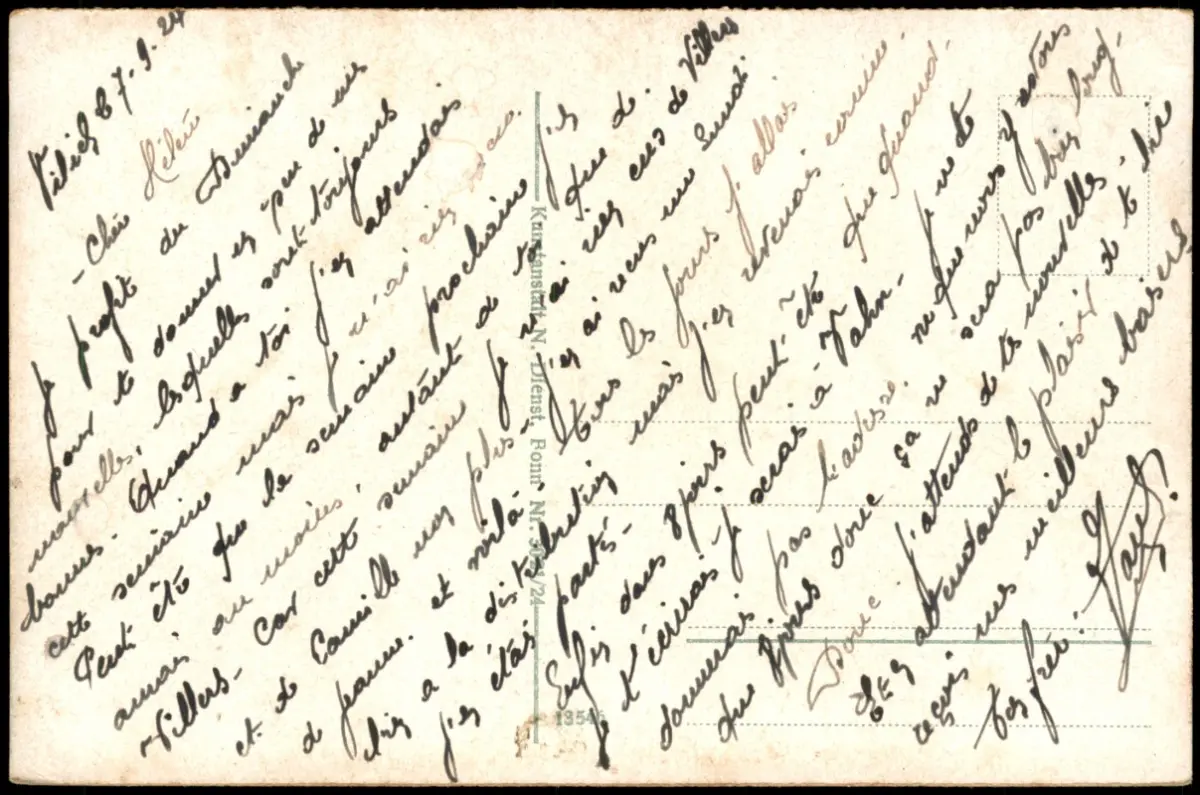 Vilich le 7-9-24
- Chère Hélène
Je profite du Dimanche
pour te donner un peu de mes
nouvelles, lesquelles sont toujours
bonnes. Quand a toi j'en attendais
cette semaine mais je n'ai rien
Peut être que la semaine prochaine j'en
aurai au moins, autant de toi que de
Villers - Car cette semaine je n'ai rien eus de Villers
et de Camille non plus j'en ai reçus un Lundi
et voilà tous les jours j'allais
a la distribution mais j'en revenais comme
j'en étais partés -
Enfin dans 8 jours peut être que quand
je t'écrirais je serais à Vahn -
donnais pas l'adresse, vu que nous y restons
que 8 jours donc ça ne sera pas bien long -
Donc j'attends de tes nouvelles
Et en attendant le plaisir de te lire
reçois mes meilleurs baisers
Ton frère :
Kunstanstalt N. Dienst, Bonn Nr.
13546